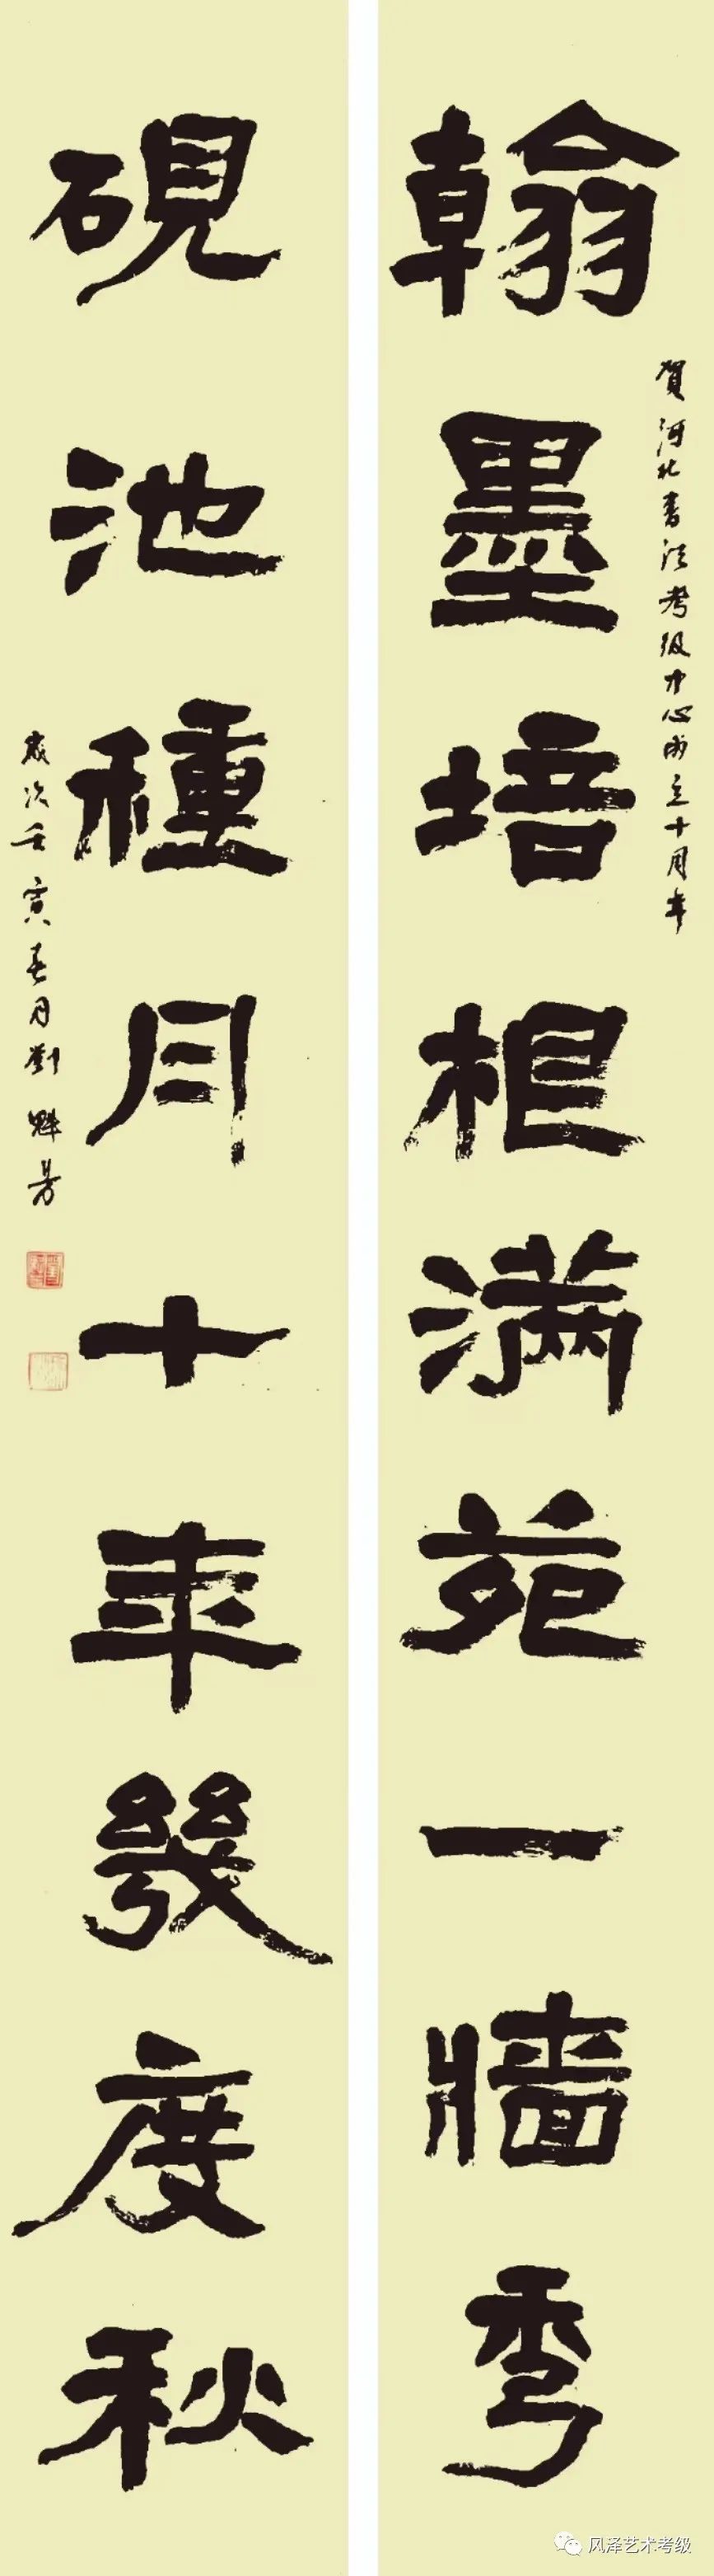 翰墨培根满苑一牆秀
賀河北書法考级中心成立十周年
硯池種月十年幾度秋
歲次壬寅春月劉魁
风泽艺术考级